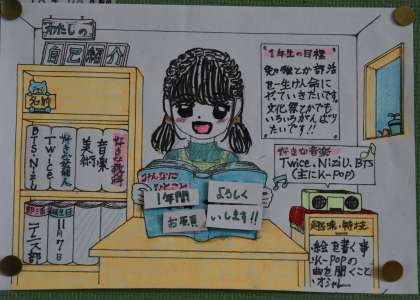 わたしの
自己紹介
名前
好きな教科
音楽
美術
好きな芸能人
Twice,
BTS,NiziU
誕生日
11月7日
テニス部
みんなに
ひとこと
1年間
よろしく
お願
いします!!
1年生の目標
勉強とか部活
を一生けん命に
やっていきたいです。
文化祭とかでも
いろいろがんばり
たいです!!
好きな音楽
Twice、NiziU、BTS
(主にK-POP)
趣味・特技
・絵を書く事
・K-POPの
曲を聞くこと